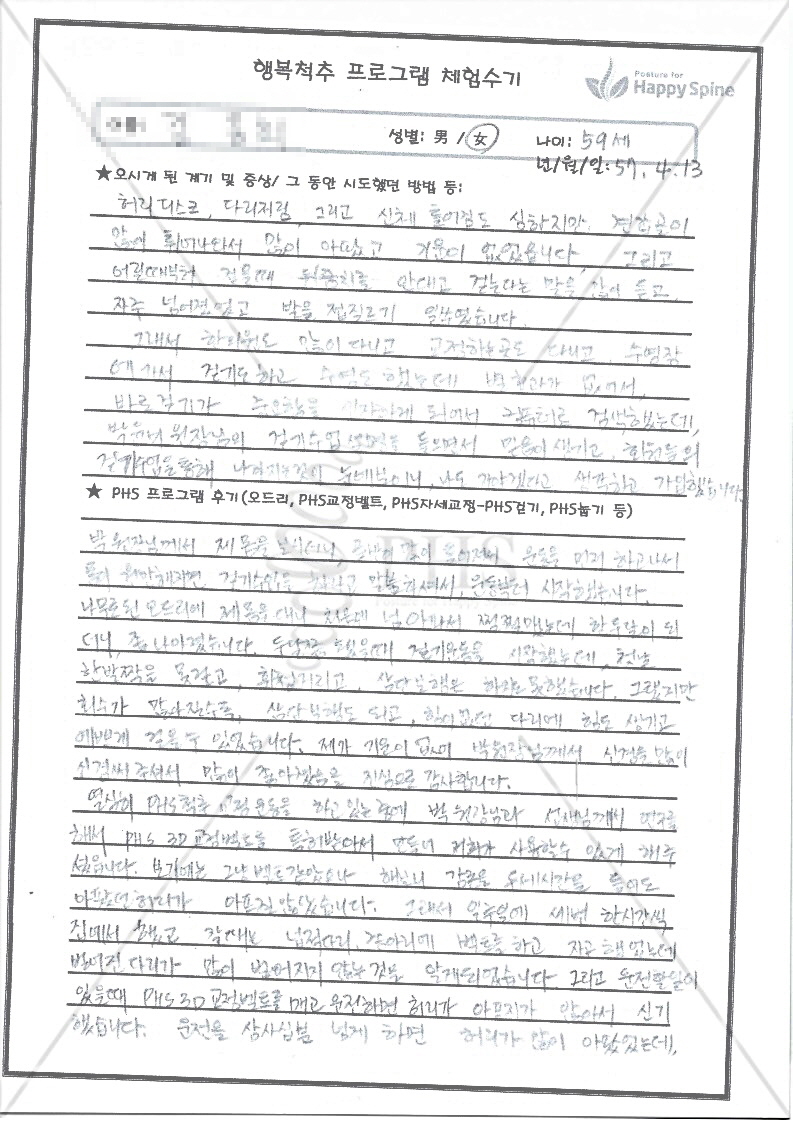 행복척추 프로그램 체험수기
Posture for
Happy Spine
이름:
성별: 男 / 女
나이: 59세
년/월/일: 57. 4. 13
★오시게 된 계기 및 증상/ 그 동안 시도했던 방법 등:
허리디스크, 다리저림, 그리고 신체 틀어짐도 심하지만, 견갑골이
많이 튀어나와서 많이 아팠고 기운이 없었습니다. 그리고
어릴때부터 걸을때 뒤꿈치를 안대고 걷는다는 말을 많이 듣고,
자주 넘어졌었고 발을 접질르기 일쑤였습니다.
그래서 한의원도 많이 다니고 교정하는곳도 다니고, 수영장
에 가서 걷기도 하고 수영도 했는데 별 효과가 없어서,
바로걷기가 중요함을 되어서 컴퓨터로 검색해봤는데,
원장님의 걷기수업 들으면서 믿음이 생기고, 회원들의
걷기수업을 통해 나도 가야겠다고 생각하고 가입했습니다.
★ PHS 프로그램 후기(오드리, PHS교정벨트, PHS자세교정-PHS걷기, PHS눕기 등)
박원장님께서 제 몸을 보시더니 많이 틀어져서 운동을 먼저 하고나서
몸이 걷기수업을 하자고 말씀하셔서, 운동부터 시작했습니다.
나무로된 오드리에 제 몸을 대니 처음엔 넘 아파서 쩔쩔맸는데 한두달이 되
더니, 좀 나아졌습니다. 두달쯤 걷기운동을 시작했는데, 첫날
한발짝을 못걷고, 휘청거리고, 삼단보행은 하지도 못했습니다. 그렇지만
회수가 많아질수록, 삼단보행도 되고, 힘이없던 다리에 힘도 생기고
예쁘게 걸을 수 있었습니다. 제가 기운이 없어 박원장님께서 신경을 많이
신경써 주셔서 많이 좋아졌음을 진심으로 감사합니다.
열심히 PHS척추 운동을 하고 있는 박원장님과 선생님께서 연구를
해서 PHS 3D교정벨트를 특허받아서 저희가 사용할수 있게 해주
셨습니다. 보기에는 그냥 벨트같았으나 해보니 시간을 들어도
아팠던 허리가 아프진 않았습니다. 그래서 일주일에 세번 한시간씩
집에서 했고 잘때는 넙적다리, 종아리에 벨트를 하고 자곤 했었는데
벌어진 다리가 많이 벌어지지 않는 것을 알게되었습니다. 그리고 운전할일이
있을때 PHS 3D교정벨트를 매고 운전하면 허리가 아프지가 않아서 신기
했습니다. 운전을 삼사십분 넘게 하면 허리가 많이 아팠었는데,
PHS